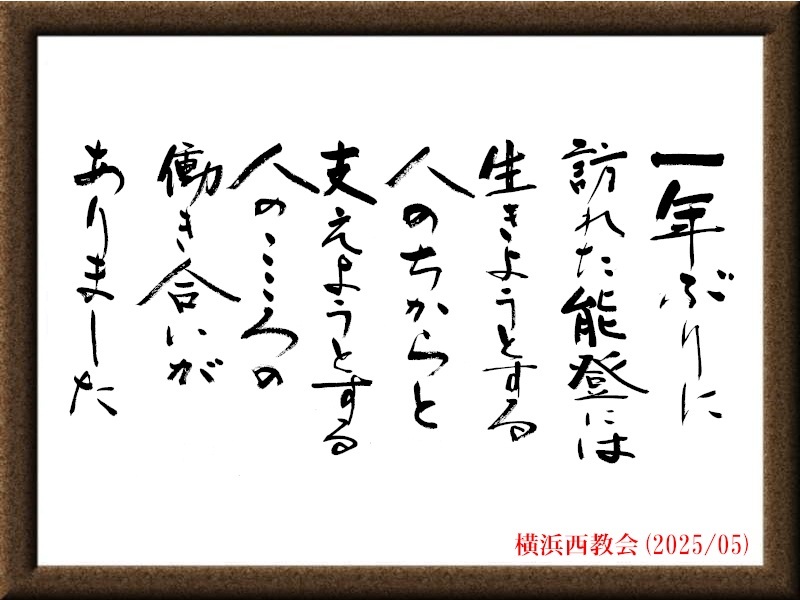 一年ぶりに
訪れた能登には
生きようとする
人のちからと
支えようとする
人のこころの
働き合いが
ありました
横浜西教会(2025/05)